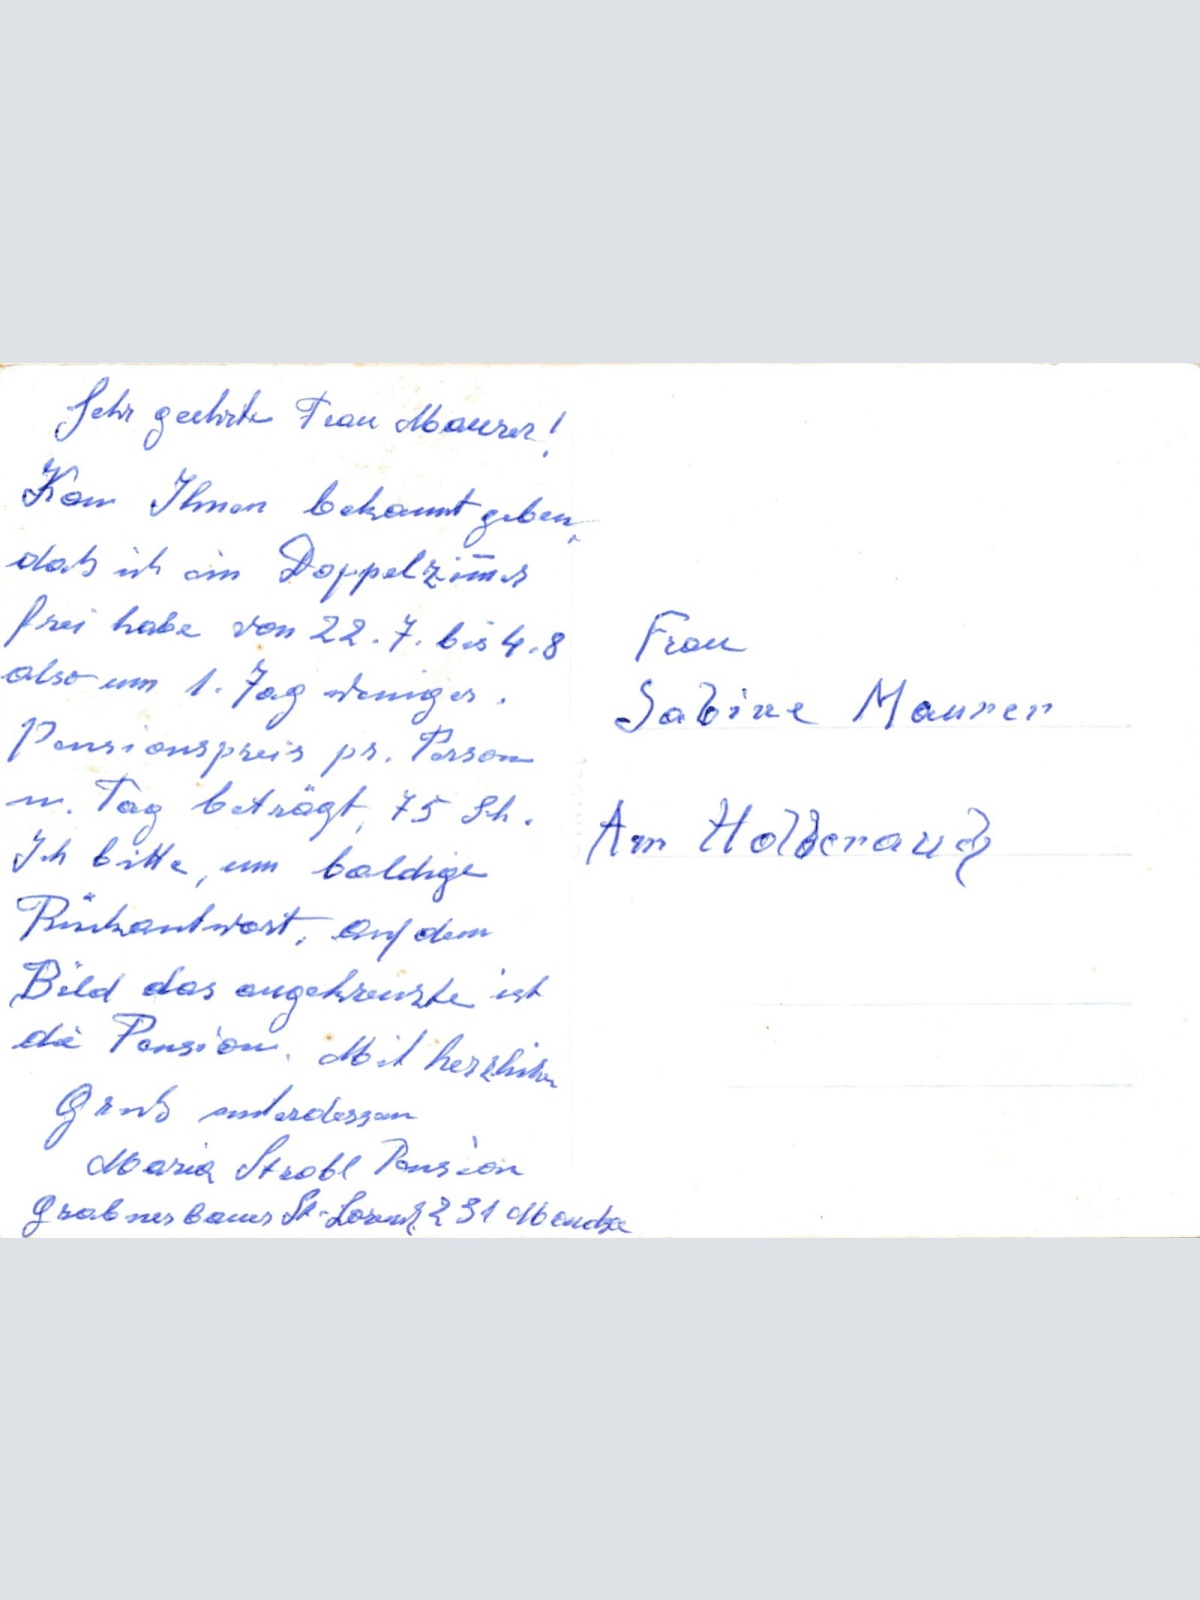 Sehr geehrte Frau Maurer!
Kann Ihnen bekannt geben,
daß ich ein Doppelzimmer
frei habe von 22.7. bis 4.8
also um 1. Tag weniger.
Pensionspreis pr. Person
u. Tag beträgt, 75 Sh.
Ich bitte, um baldige
Rückantwort, auf dem
Bild das angekreuzte ist
die Pension. Mit herzlichen
Gruß unterdessen
Maria Strobl Pension
Grabnerbauer St. Lorenz 231 Mondsee
Frau
Sabine Maurer
Am